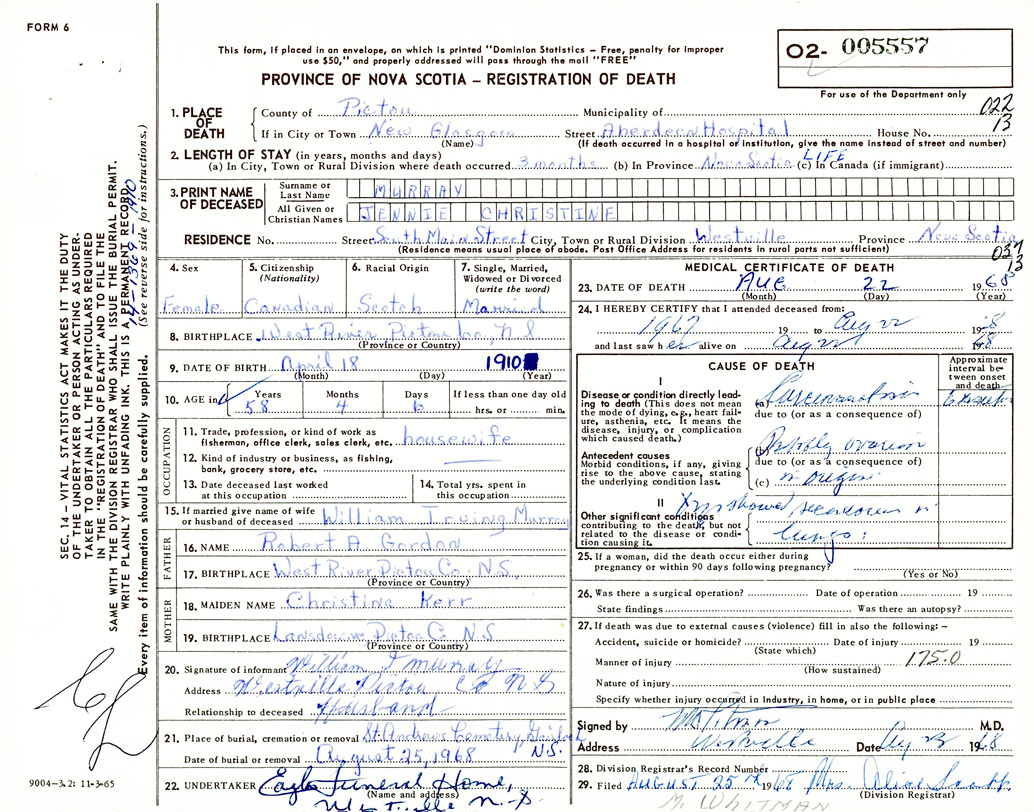 FORM 6
This form, if placed in an envelope, on which is printed "Dominion Statistics – Free, penalty for improper
use $50," and properly addressed will pass through the mail "FREE"
PROVINCE OF NOVA SCOTIA – REGISTRATION OF DEATH
02- 005557
For use of the Department only
022
13
1. PLACE OF DEATH
County of Pictou Municipality of
If in City or Town New Glasgow Street Aberdeen Hospital House No.
(Name) (If death occurred in a hospital or institution, give the name instead of street and number)
2. LENGTH OF STAY (in years, months and days)
(a) In City, Town or Rural Division where death occurred 3 months (b) In Province Nova Scotia LIFE (c) In Canada (if immigrant)
3. PRINT NAME OF DECEASED
Surname or Last Name MURRAY
All Given or Christian Names JENNIE CHRISTINE
RESIDENCE No. Street South Main Street City, Town or Rural Division Westville Province Nova Scotia
(Residence means usual place of abode. Post Office Address for residents in rural parts not sufficient)
037
13
4. Sex
Female
5. Citizenship (Nationality)
Canadian
6. Racial Origin
Scotch
7. Single, Married, Widowed or Divorced (write the word)
Married
8. BIRTHPLACE West River, Pictou Co, N S
(Province or Country)
9. DATE OF BIRTH April 18 1910
(Month) (Day) (Year)
10. AGE in Years Months Days If less than one day old
58 4 6 hrs. or min.
OCCUPATION
11. Trade, profession, or kind of work as fisherman, office clerk, sales clerk, etc. housewife
12. Kind of industry or business, as fishing, bank, grocery store, etc.
13. Date deceased last worked at this occupation
14. Total yrs. spent in this occupation
15. If married give name of wife or husband of deceased William Irving Murray
FATHER
16. NAME Robert A Gordon
17. BIRTHPLACE West River Pictou Co. N.S.
(Province or Country)
MOTHER
18. MAIDEN NAME Christina Kerr
19. BIRTHPLACE Lansdowne Pictou C N.S
(Province or Country)
20. Signature of informant William I Murray
Address Westville Pictou, Co N S
Relationship to deceased Husband
21. Place of burial, cremation or removal St. Andrews Cemetery
N.S.
Date of burial or removal August 25, 1968
22. UNDERTAKER Eagles Funeral Home,
(Name and address)
Westville N.S.
MEDICAL CERTIFICATE OF DEATH
23. DATE OF DEATH AUG 22 1968
(Month) (Day) (Year)
24. I HEREBY CERTIFY that I attended deceased from:
1967 19 to Aug 22 1968
and last saw her alive on Aug 22 1968
CAUSE OF DEATH
Approximate interval between onset and death
I
Disease or condition directly leading to death (This does not mean the mode of dying, e.g., heart failure, asthenia, etc. It means the disease, injury, or complication which caused death.)
(a) Carcinomatosis
due to (or as a consequence of)
Antecedent causes
Morbid conditions, if any, giving rise to the above cause, stating the underlying condition last.
(b) Possibly ovarian
due to (or as a consequence of)
(c) in origin
II
Other significant conditions contributing to the death, but not related to the disease or condition causing it.
X rays showed secondaries in
lungs.
25. If a woman, did the death occur either during pregnancy or within 90 days following pregnancy?
(Yes or No)
26. Was there a surgical operation? Date of operation 19
State findings Was there an autopsy?
27. If death was due to external causes (violence) fill in also the following:–
Accident, suicide or homicide? Date of injury 19
(State which)
Manner of injury 175.0
(How sustained)
Nature of injury
Specify whether injury occurred in industry, in home, or in public place
Signed by M.D.
Address Westville Date Aug 23 1968
28. Division Registrar's Record Number
29. Filed AUGUST 25th 1968 Mrs. Alice
(Division Registrar)
M. WHITMAN
SEC. 14 – VITAL STATISTICS ACT MAKES IT THE DUTY
OF THE UNDERTAKER OR PERSON ACTING AS UNDER-
TAKER TO OBTAIN ALL THE PARTICULARS REQUIRED
IN THE "REGISTRATION OF DEATH" AND TO FILE THE
SAME WITH THE DIVISION REGISTRAR WHO SHALL ISSUE THE BURIAL PERMIT.
WRITE PLAINLY WITH UNFADING INK. THIS IS A PERMANENT RECORD.
Every item of information should be carefully supplied. (See reverse side for instructions.)
9004-3.2: 11-3-65